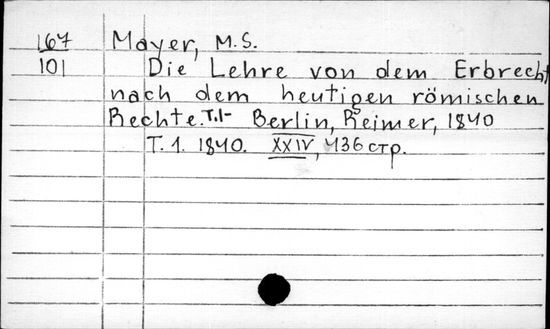 167 Mayer, M.S.
101 Die Lehre von dem Erbrecht
nach dem heutigen römischen
Rechte. T.1- Berlin, Reimer, 1840
T. 1. 1840. XXIV, 436 стр.